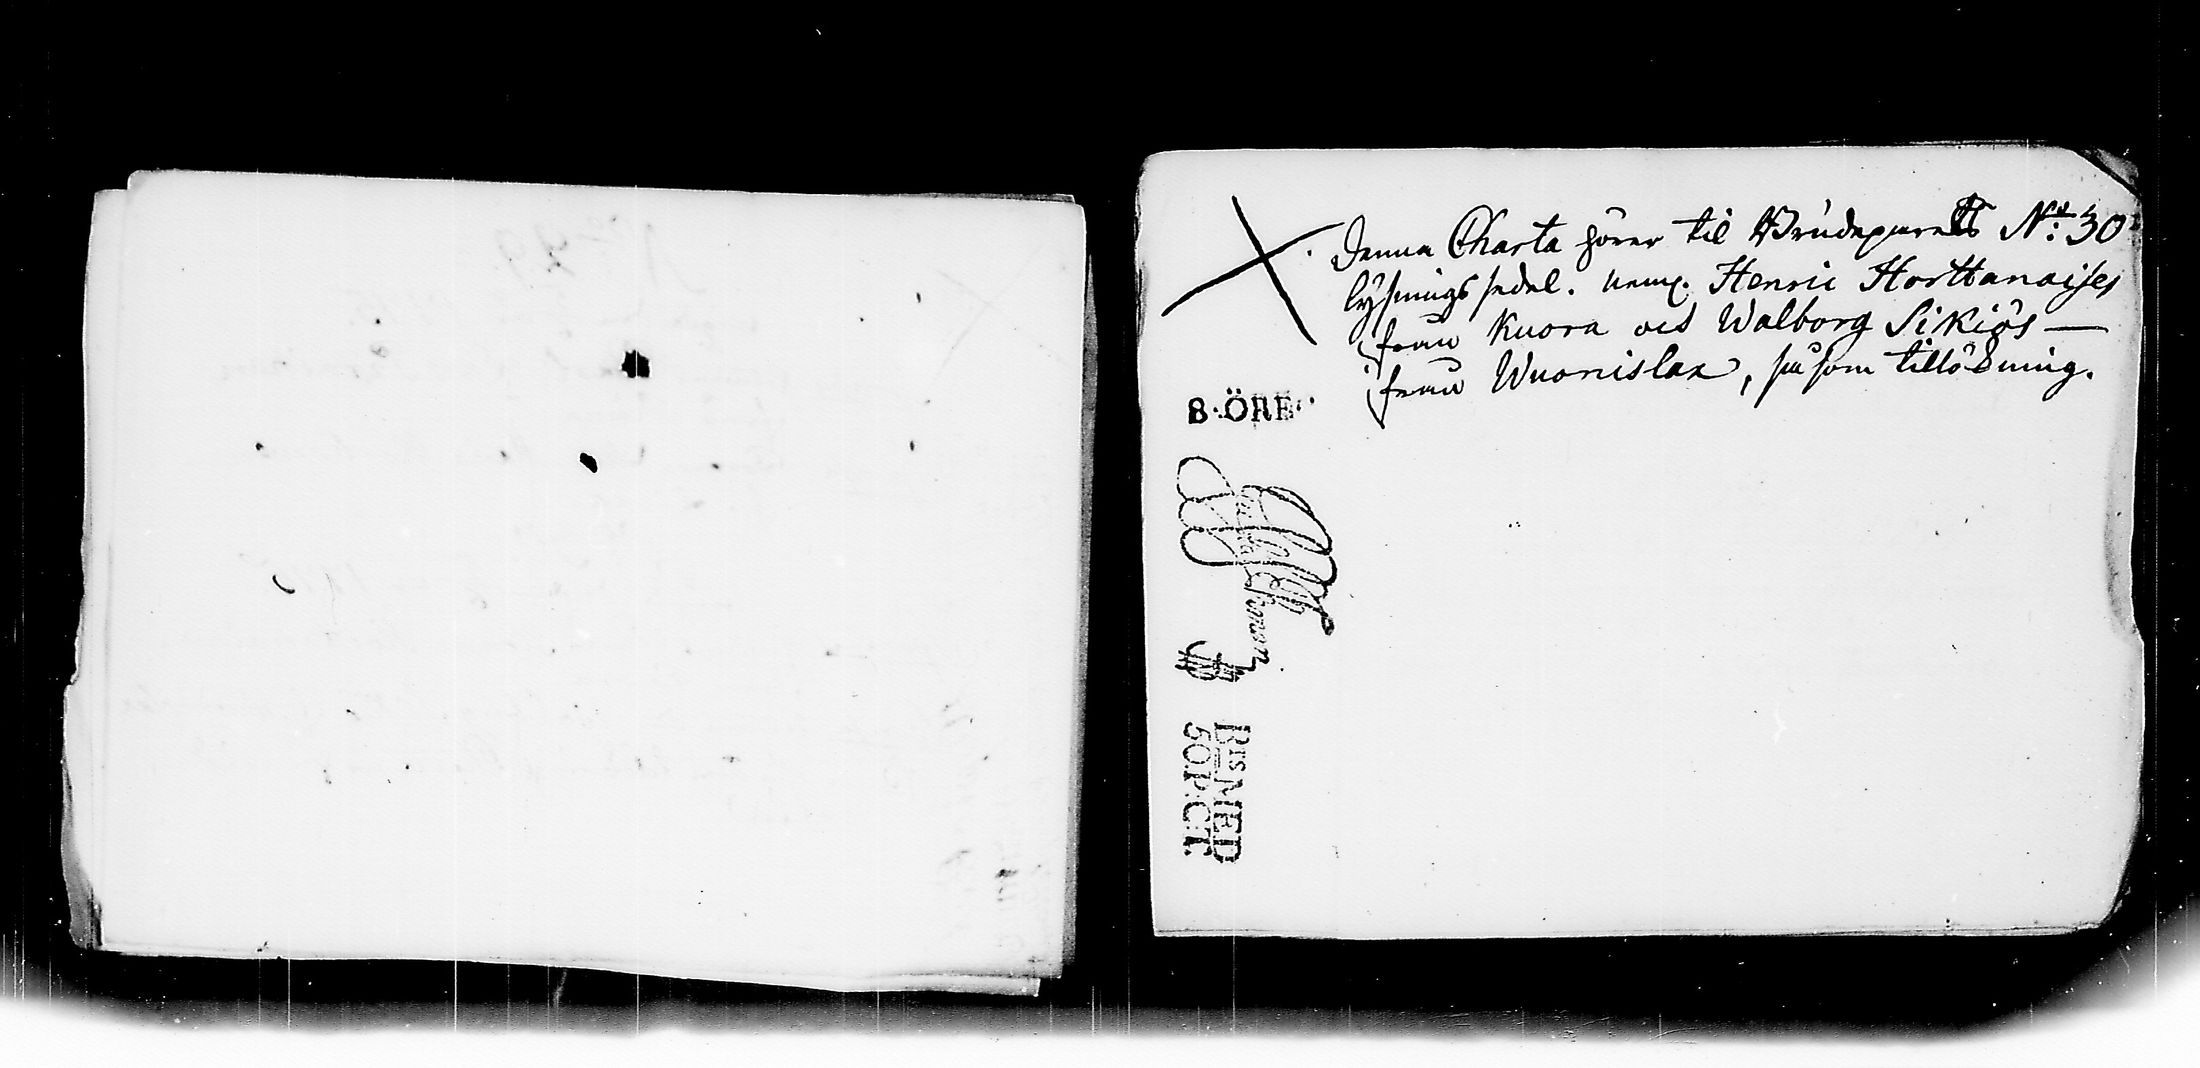 Denna Charta hörer til Brudeparets N:o 30
lysnings sedel. nemp. Henric Horttanaises
från Kuora och Walborg Sikiös —
från Wuonislax, såsom tillökning.
8·ÖRE·
BISMED
50.P.CT.